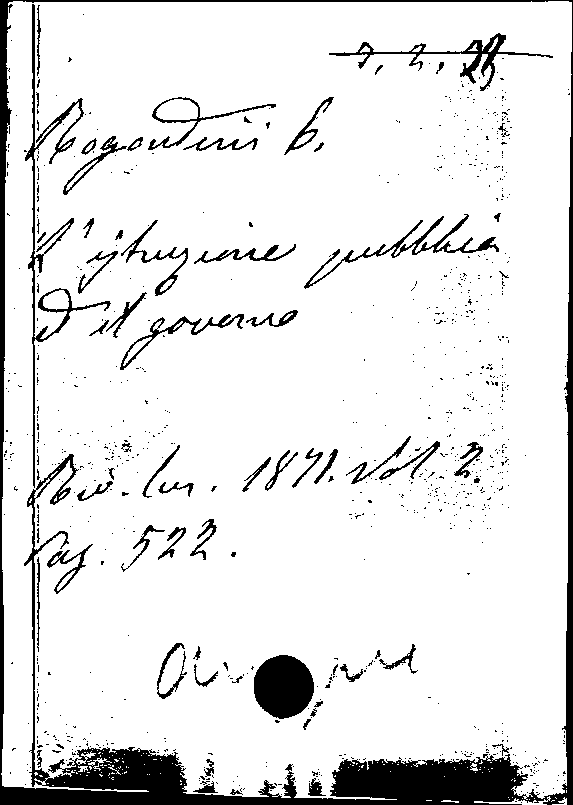 7. 2. 23
Rogondini E.
L'istruzione pubblica
ed il governo
Riv. Eur. 1871. Vol. 2.
Pag. 522.